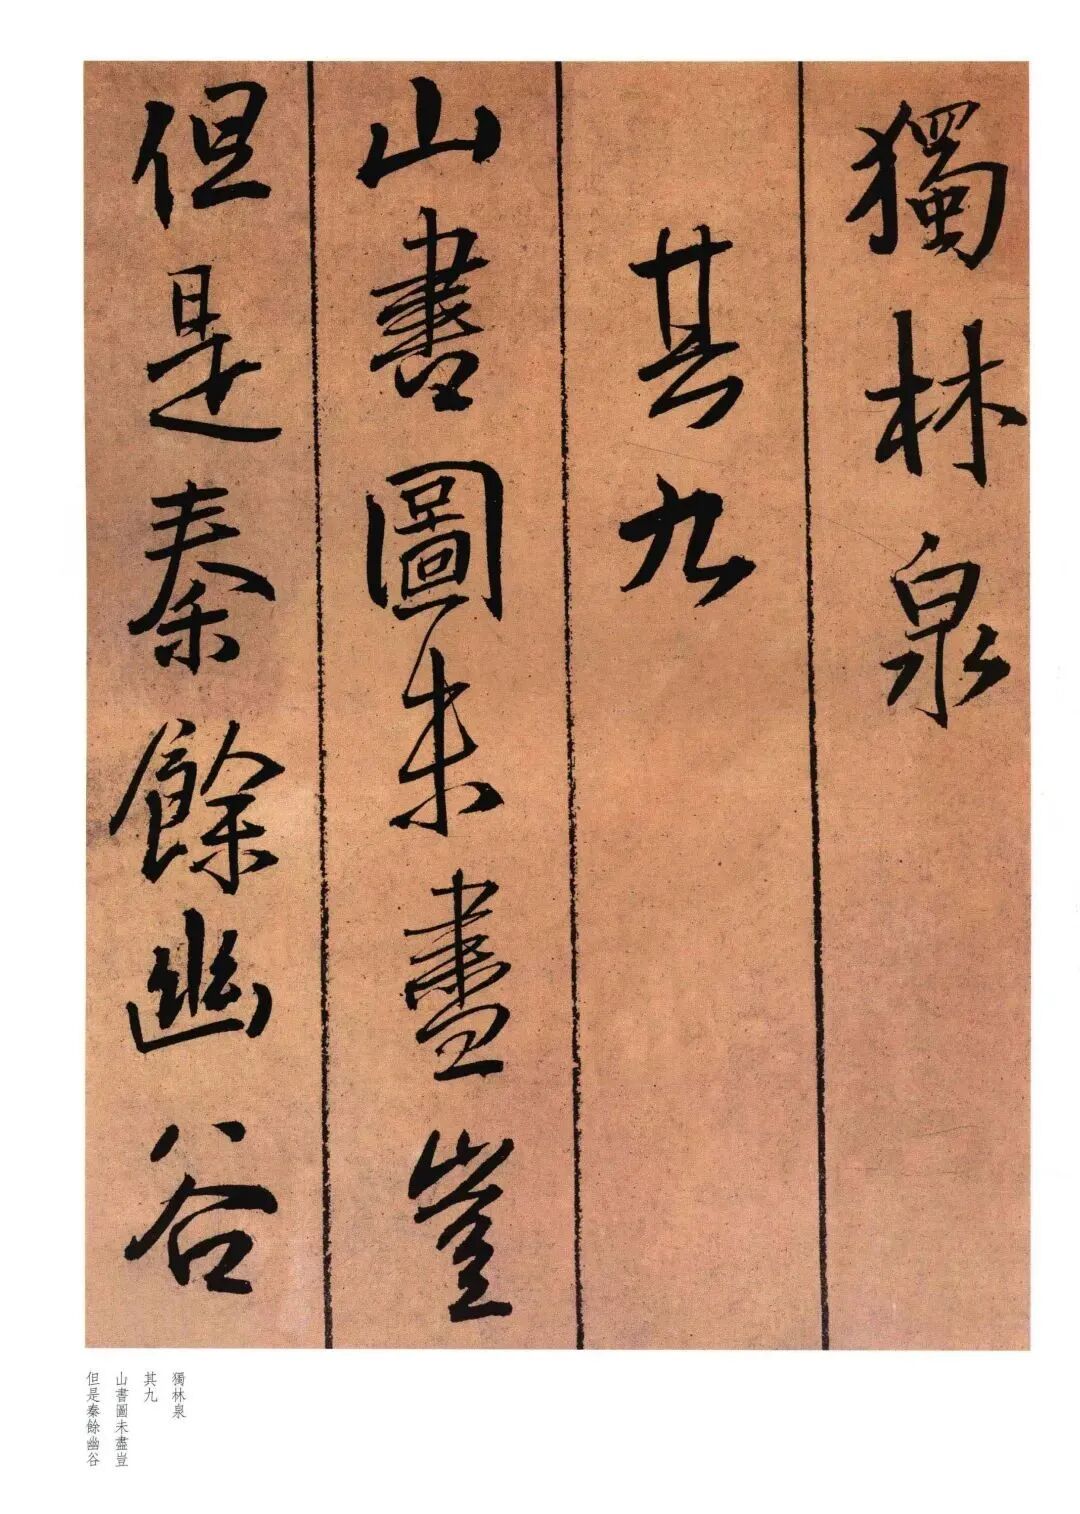 獨林泉
其九
山書圖未盡豈
但是秦餘幽谷
獨林泉
其九
山書圖未盡豈
但是秦餘幽谷